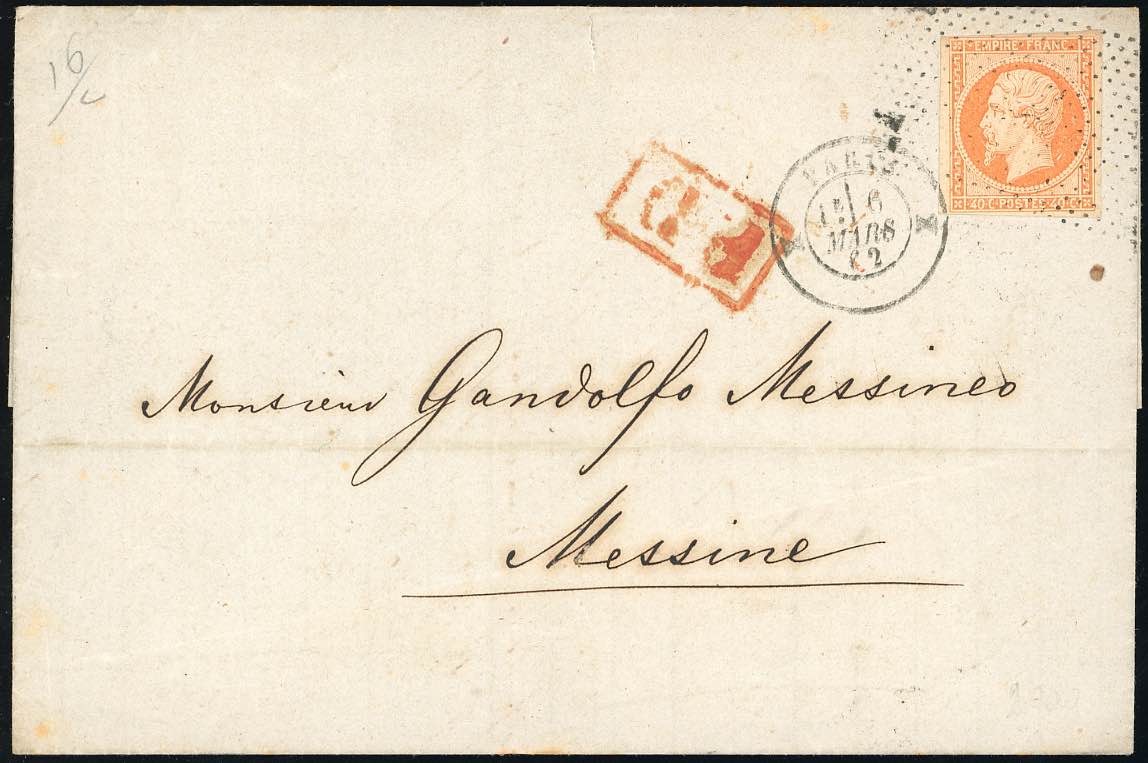 16/
EMPIRE FRANC
40 C. POSTES 40 C.
PARIS
6
MARS
62
Monsieur Gandolfo Messineo
Messine